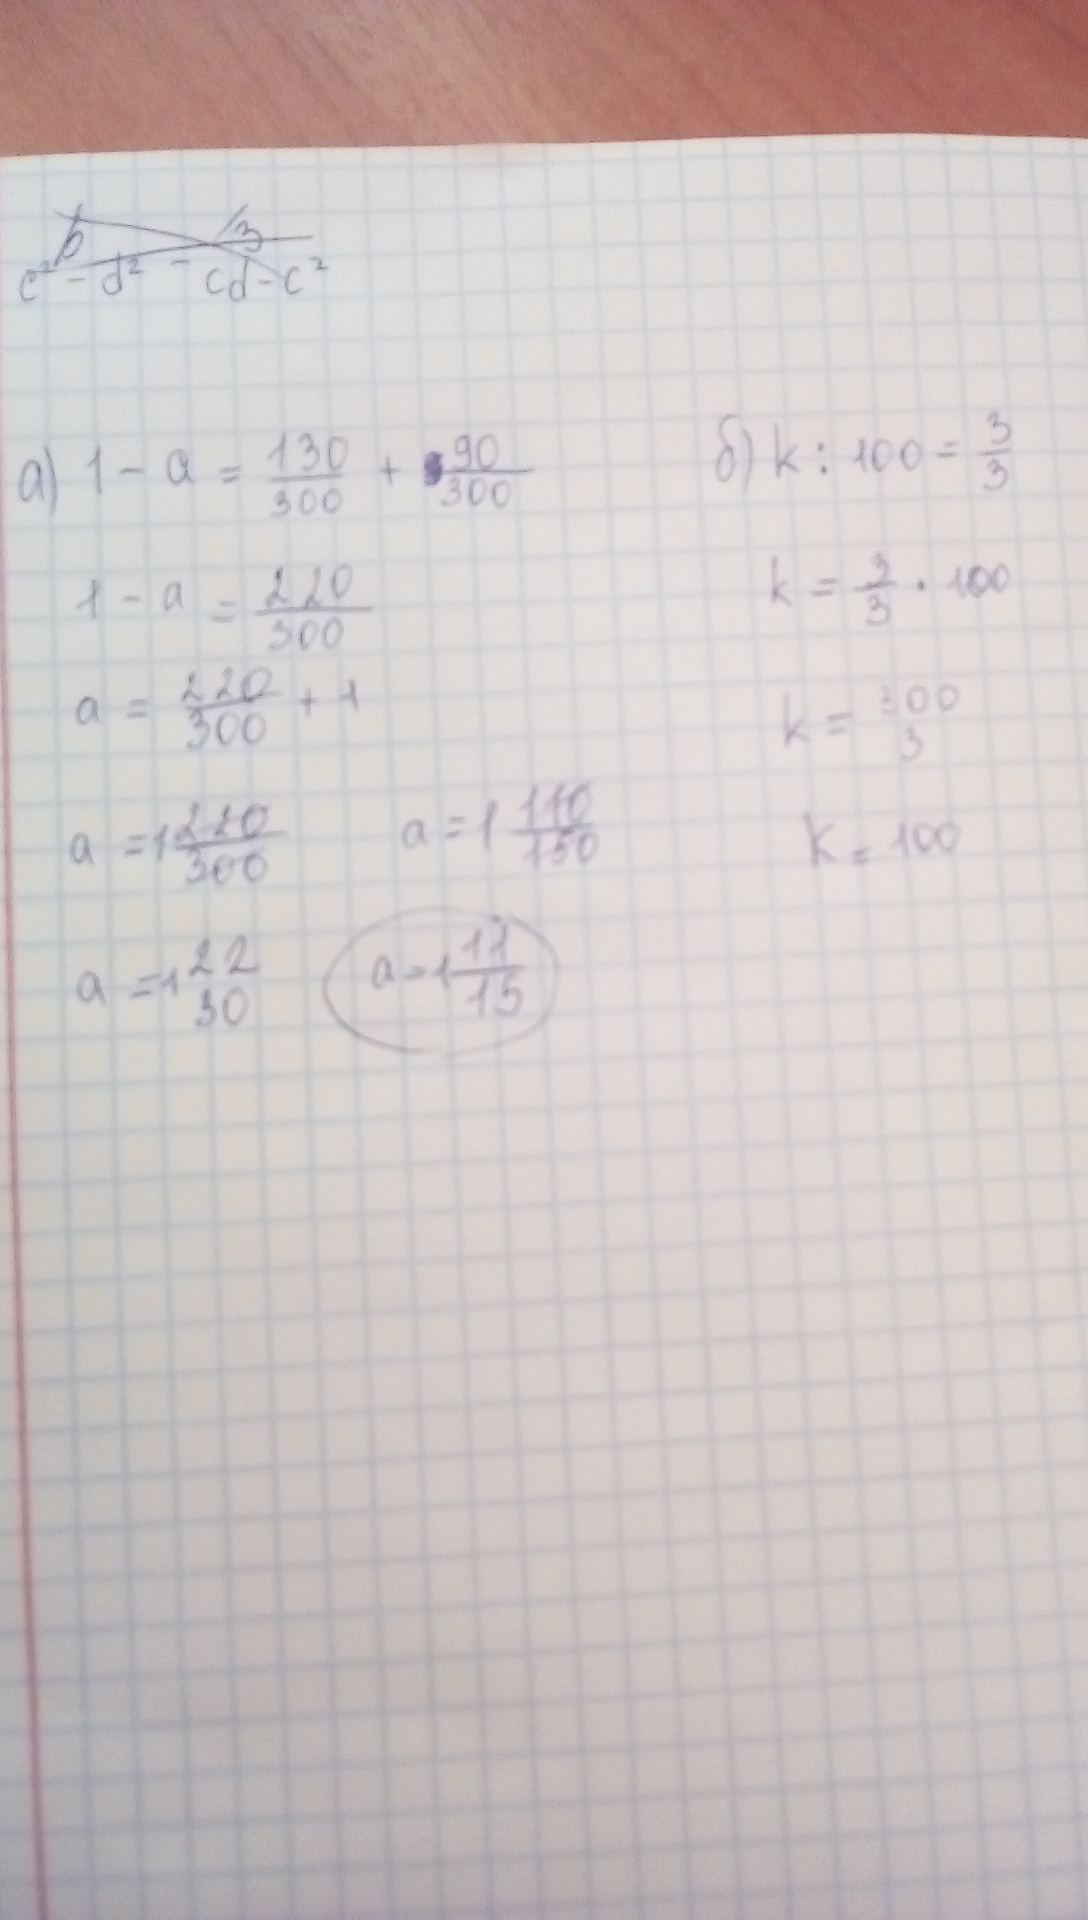 b 3
c² - d² - cd - c²
а) 1 - a = 130/300 + 90/300
1 - a = 220/300
a = 220/300 + 1
a = 1 220/300 a = 1 110/150
a = 1 22/30 a = 1 11/15
б) k : 100 = 3/3
k = 3/3 · 100
k = 300/3
k = 100